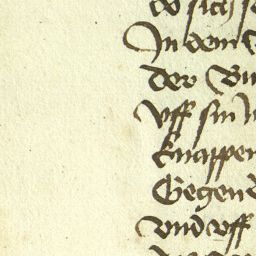 do sich s
In dem
Der Bu
Uff sin
Knappen
Gegen
Vnd vff